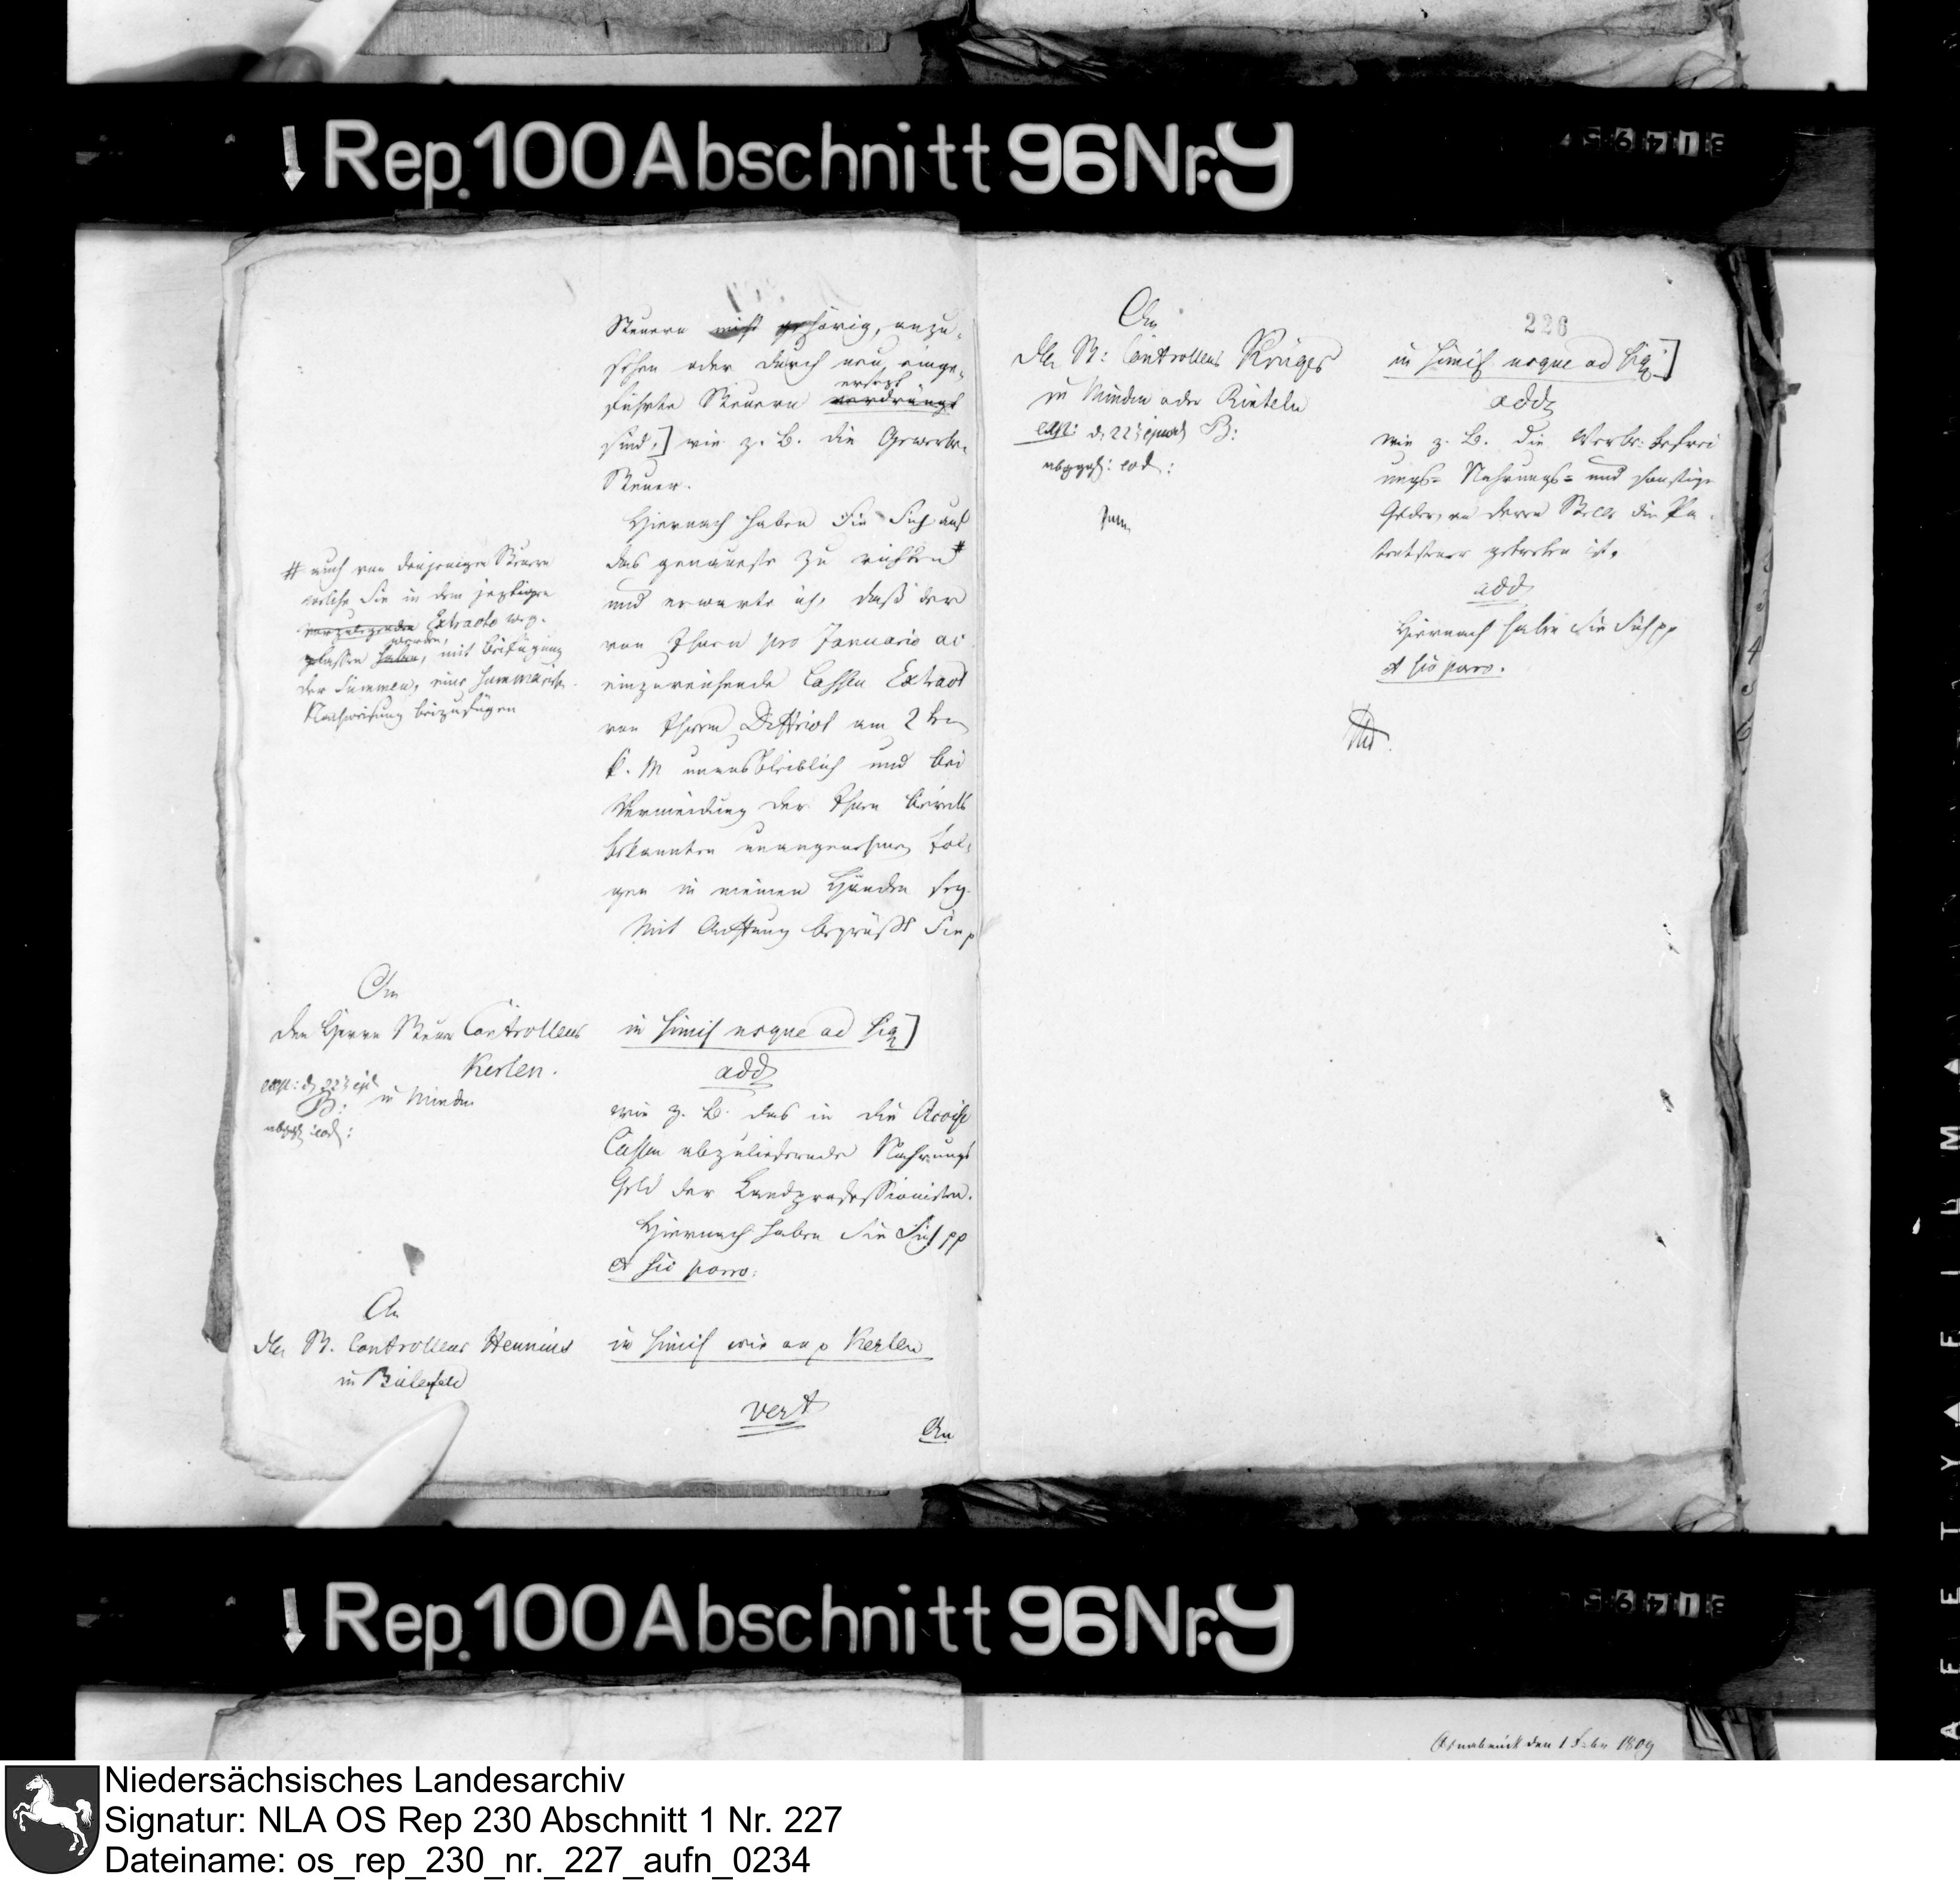 Rep. 100 Abschnitt 96 Nr. 9
Steuern nicht gehörig, anzu-
sehen oder durch neu einge-
ersetzt
führte Steuern verdrängt
sind,] wie z. B. die Gewerbe-
Steuer.
Hiernach haben Sie Sich auf
das genaueste zu richten #
und erwarte ich, daß der
von Ihnen pro Januario ac
einzureichende Cassen Extract
von Ihrem District am 2ten
k. M unausbleiblich und bei
Vermeidung der Ihnen bereits
bekannten unangenehmen Fol-
gen in meinen Händen sey.
Mit Achtung begrüßt Sie p
# auch von denjenigen Steuern
welche Sie in dem jetzigen
vorzulegenden Extracte weg-
werden,
gelassen haben, mit Beifügung
der Summen, eine summarische
Nachweisung beizufügen
An
den Herrn Steuer Controlleur
Kerlen.
in Minden
in simil usque ad sig]
add
wie z. B. das in die Accise
Cassen abzuliefernde Nahrungs
Geld der Landprofessionisten.
Hiernach haben Sie Sich pp
et sic porro.
An
den St. Controlleur Hennins
in Bielefeld
in simil wie an p Kerlen
vert
An
226
An
den St: Controlleur Krüger
zu Minden oder Rinteln
in simil usque ad sig]
add
wie z. B. die Werbe-befrei
ungs- Nahrungs- und sonstige
Gelder, an deren Stelle die Pa-
tentsteuer getreten ist.
add
Hiernach haben Sie Sich pp
et sic porro.
Rep. 100 Abschnitt 96 Nr. 9
Osnabrück den 1 Febr 1809
Niedersächsisches Landesarchiv
Signatur: NLA OS Rep 230 Abschnitt 1 Nr. 227
Dateiname: os_rep_230_nr._227_aufn_0234